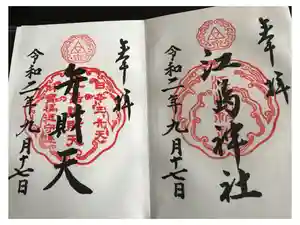 奉拝
江島神社
令和二年九月十七日
奉拝
弁財天
令和二年九月十七日